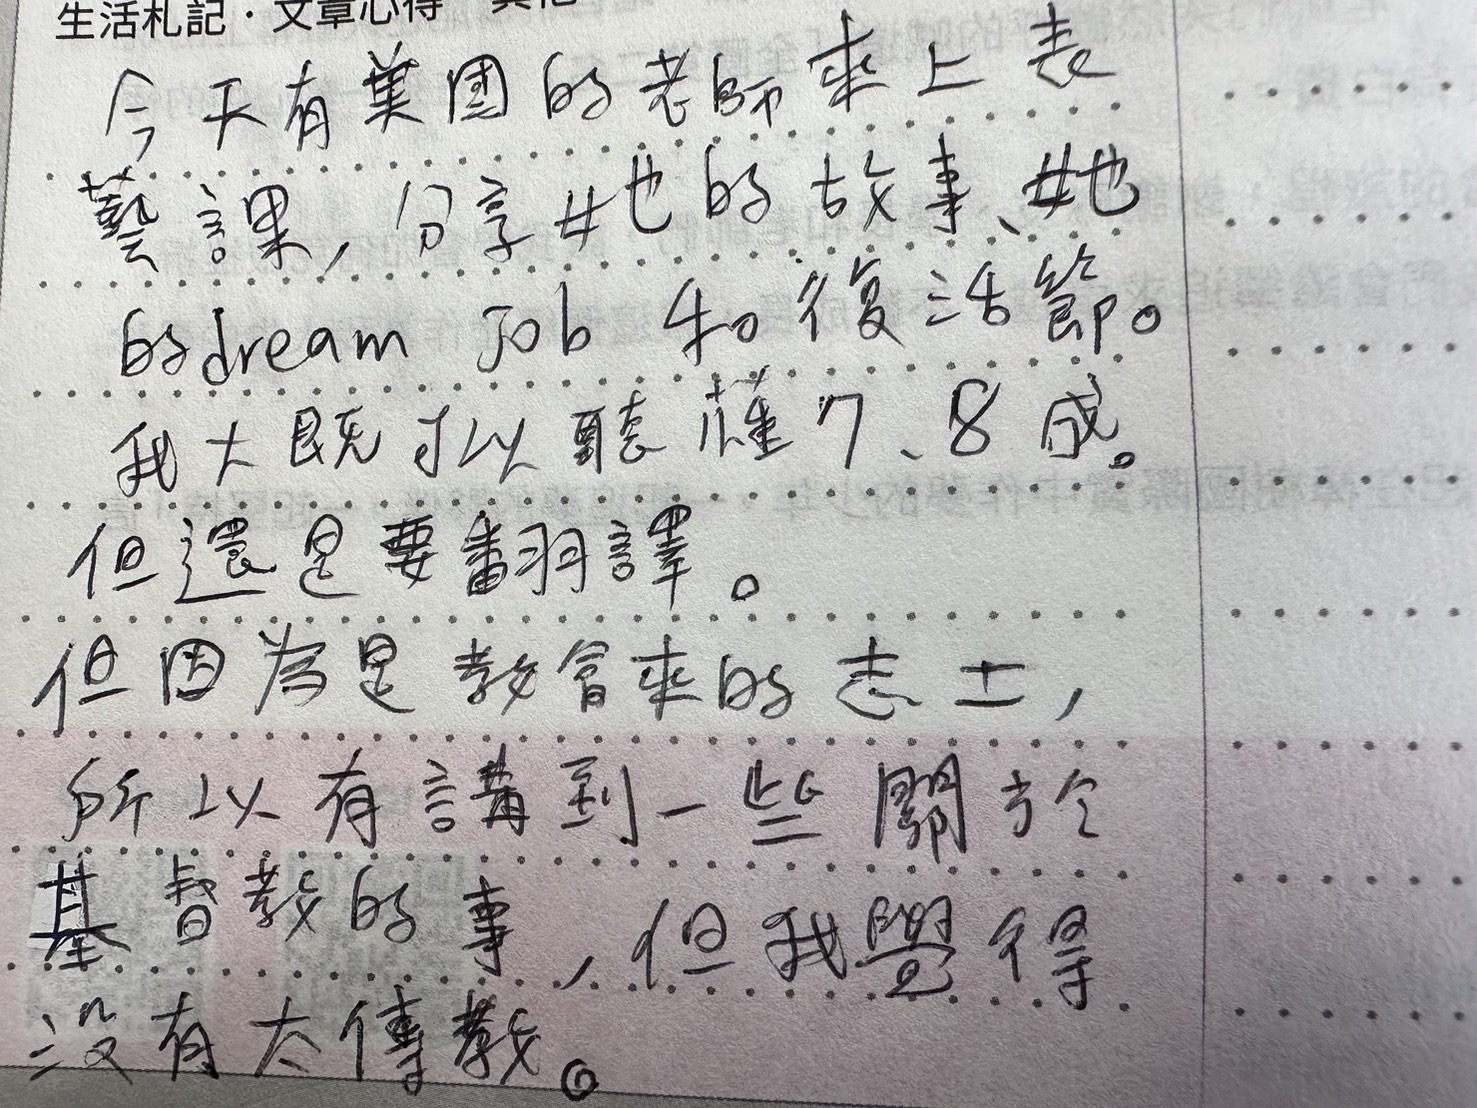 生活札記·文章心得
今天有美國的老師來上表
藝課,分享她的故事、她
的dream Job 和復活節。
我大既可以聽懂7、8成。
但還是要翻譯。
但因為是教會來的志士,
所以有講到一些關於
基督教的事,但我覺得
沒有太傳教。